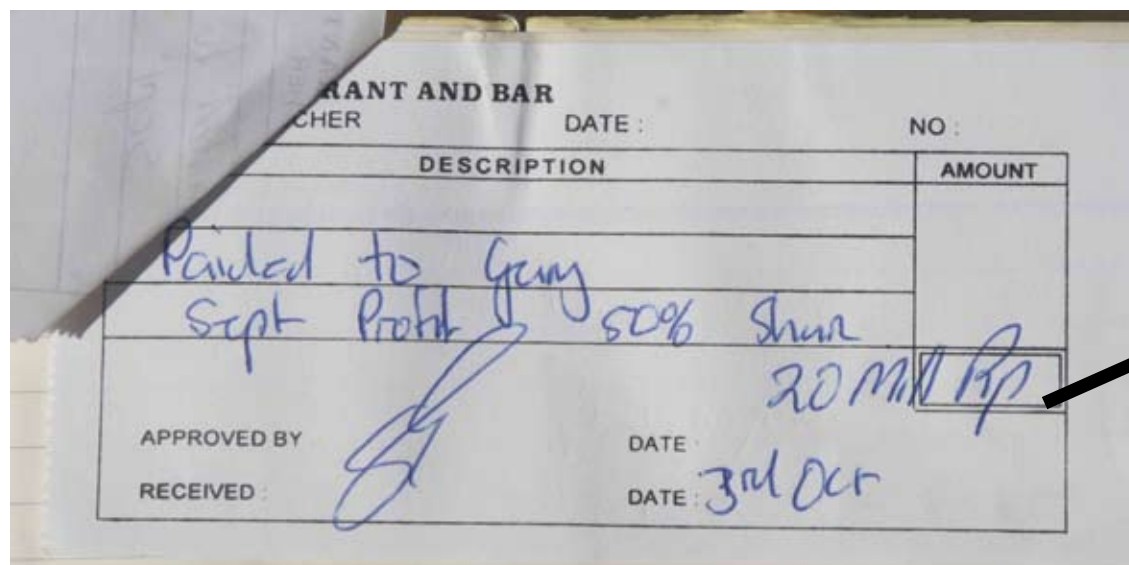 RANT AND BAR
CHER DATE : NO :
DESCRIPTION AMOUNT
Paided to Gary
Sept Profit 50% Share
20 Mill Rp
APPROVED BY DATE :
RECEIVED : DATE : 3rd Oct